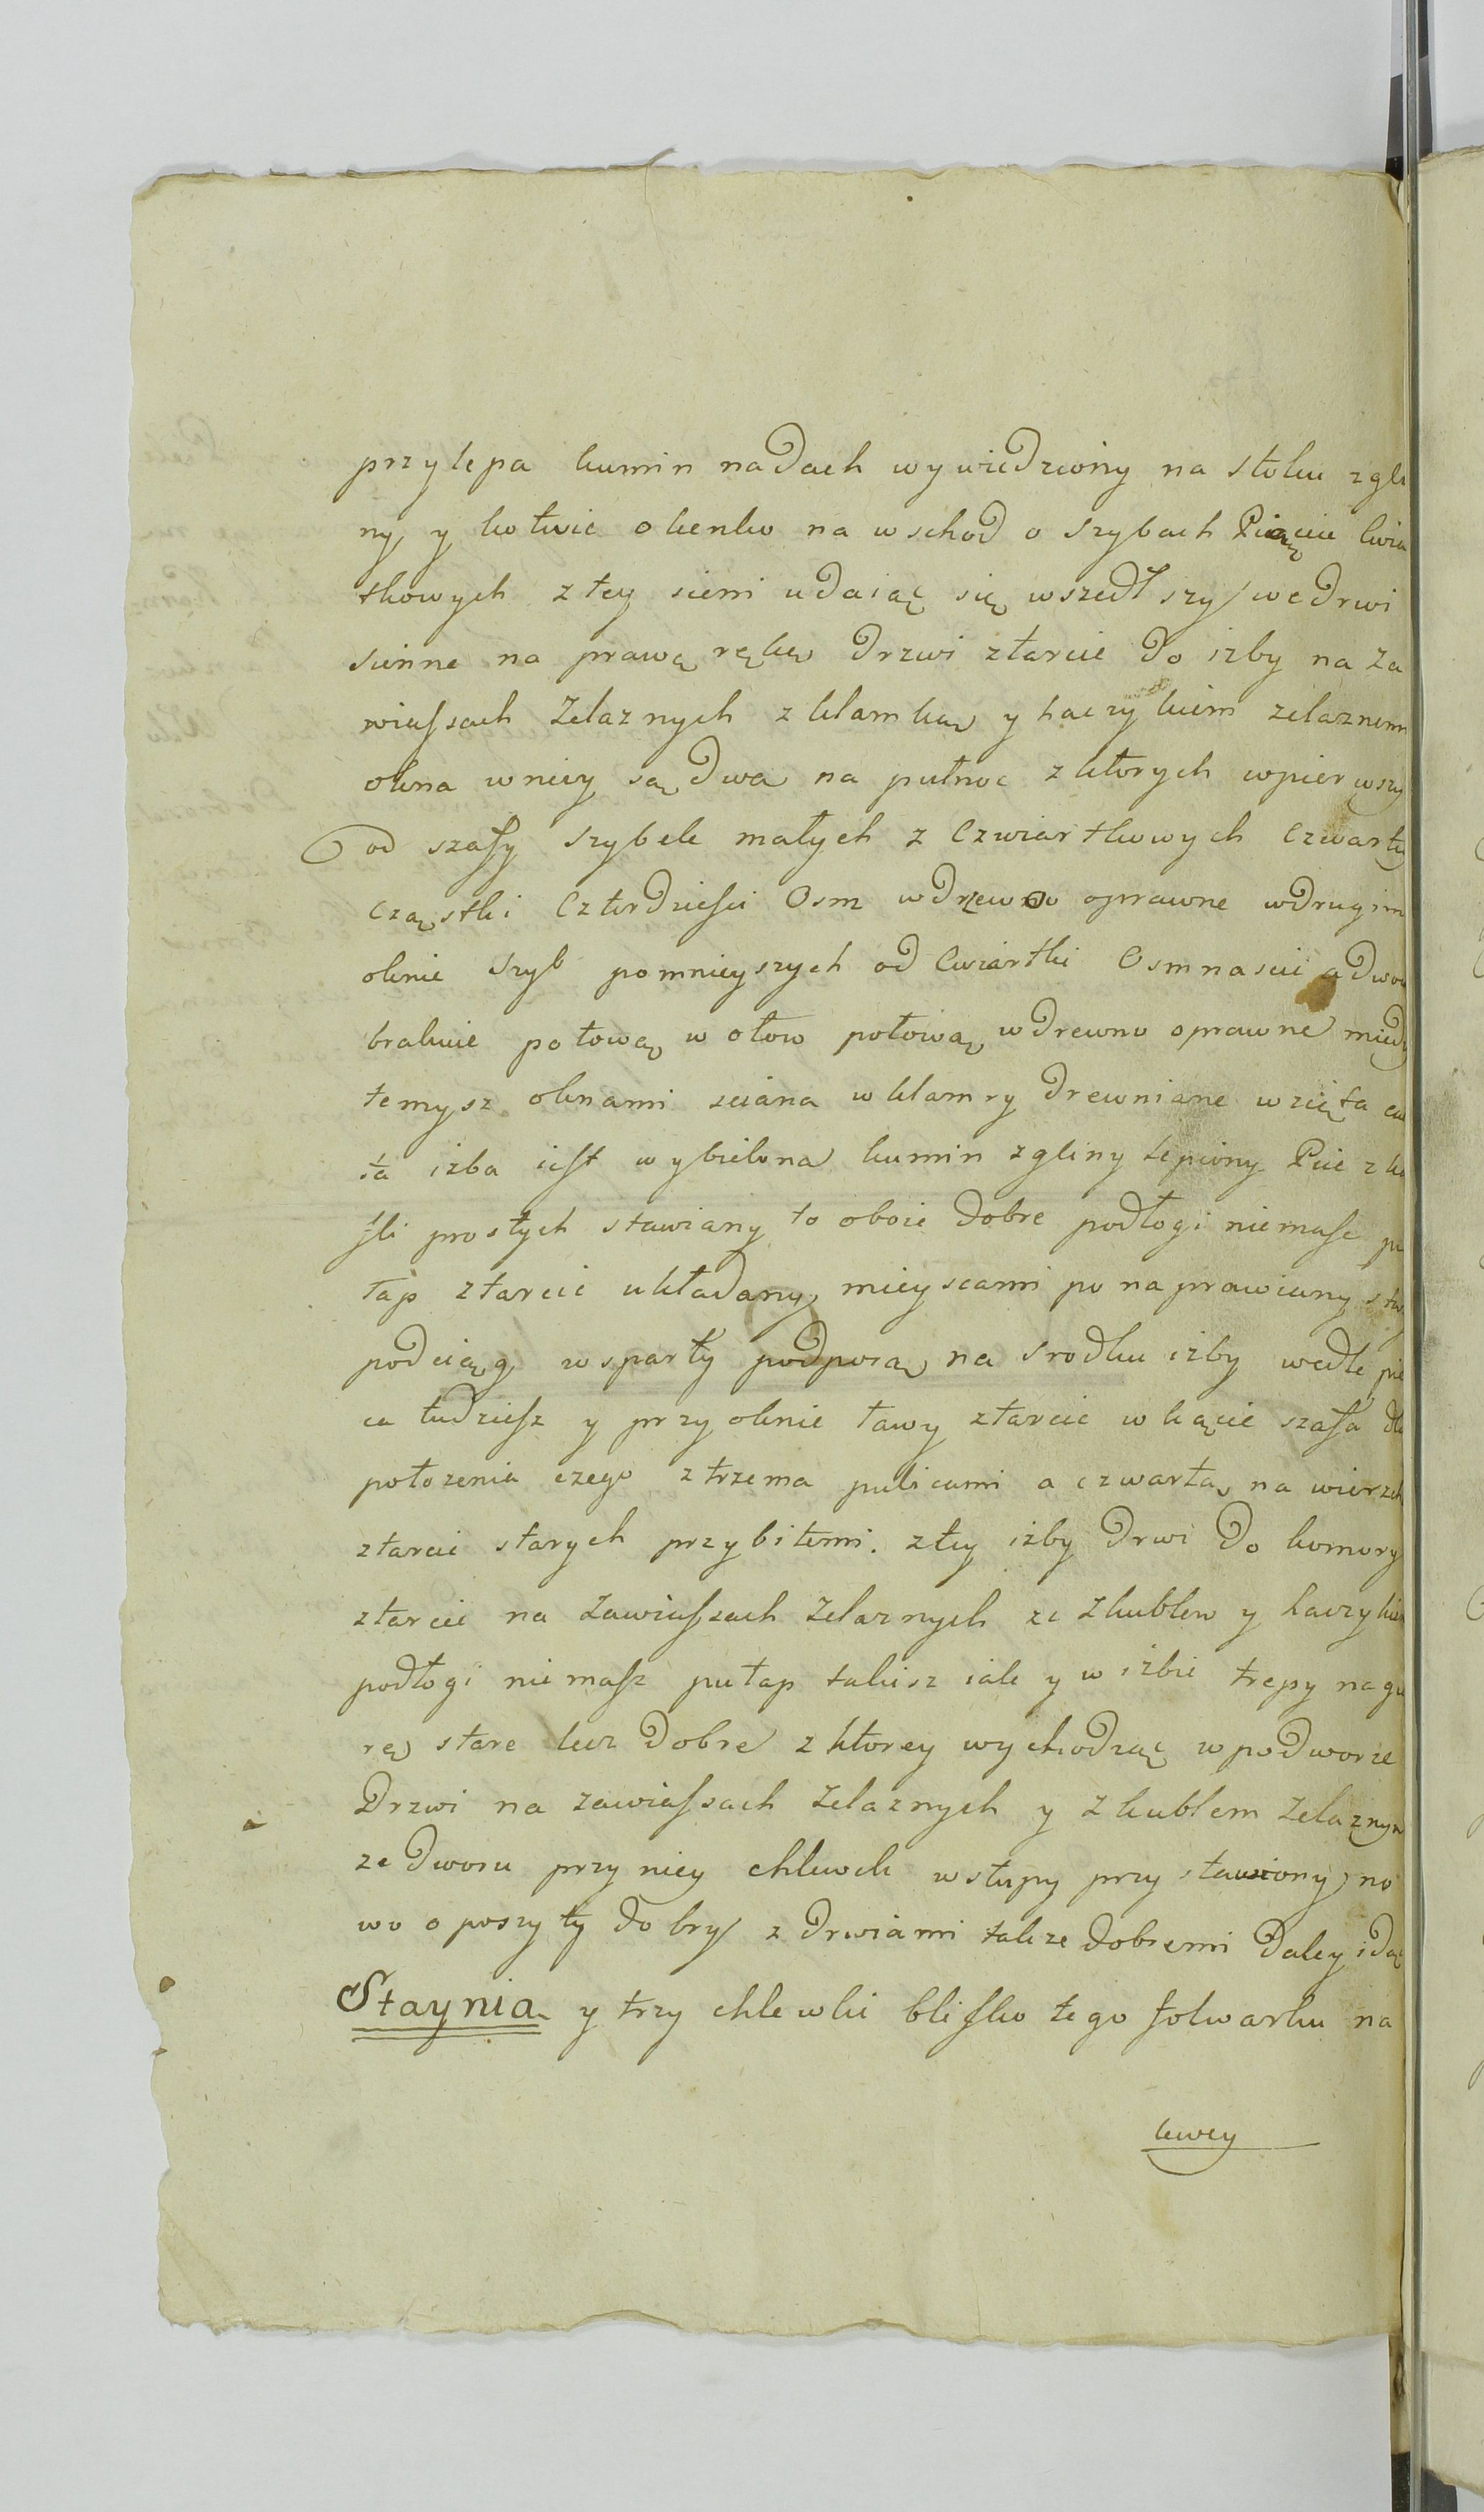 przylepa kumin nadach wywiedziony na stołku zgli
ny, y kotwic okenko na wschod o szybach Piąciu ćwia
tkowych z tey sieni udaiąc się wszedłszy we drwi
sienne na prawą rękę drzwi ztarcic do izby na Za
wiassach Zelaznych z klamką y haczykiem zelaznem
okna wniey są dwa na pułnoc z ktorych wpierwszy
od szafy szybek małych z Czwiartkowych Czwartey
Cząstki Czterdziesci Osm wdrzewo oprawne wdrugim
oknie szyb pomnieyszych od Cwiartki Osmnascie a dwoch
brakuie połową w ołow połową wdrewno oprawne miedy
temysz oknami sciana w klamry drewniane wzięta ca
ła izba iest wybielona kumin zgliny lepiony Piec z ka
fli prostych stawiany to oboie dobre podłogi niemasz pu
łap ztarcic układany, mieyscami ponaprawiany
podciąg wsparty podporą na srodku izby wedle pie
ca tudziesz y przy oknie ławy ztarcic w kącie szafa dla
położenia czego z trzema pulicami a czwartą na wierzch
ztarcic starych przybitemi. ztey izby Drwi do komory
ztarcic na Zawiassach Zelaznych ze Zkublem y haczykiem
podłogi niemasz pułap takisz iak y w izbie trepy na gu
rę stare lecz dobre z ktorey wychodząc w podworze
Drzwi na zawiassach Zelaznych y Zkublem Zelaznym
ze Dworu przy niey chlewek wstupy przystawiony, no
wo oposzyty dobry z drwiami takze dobremi Daley idąc
Staynia y trzy chlewki blisko tego folwarku na
lewey